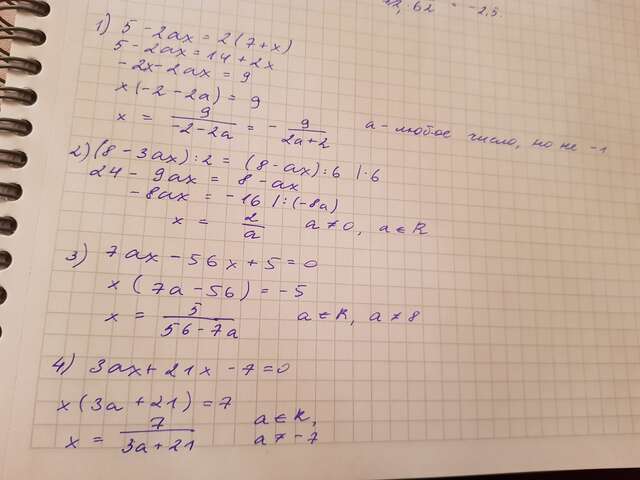 = -2,5.
1) 5 - 2ax = 2(7+x)
5 - 2ax = 14 + 2x
-2x - 2ax = 9
x(-2-2a) = 9
x = 9/(-2-2a) = - 9/(2a+2) a - любое число, но не -1
2) (8-3ax):2 = (8-ax):6 |·6
24 - 9ax = 8 - ax
-8ax = -16 |:(-8a)
x = 2/a a≠0, a∈R
3) 7ax - 56x + 5 = 0
x(7a-56) = -5
x = 5/(56-7a) a∈R, a≠8
4) 3ax + 21x - 7 = 0
x(3a+21) = 7
x = 7/(3a+21) a∈R, a≠-7